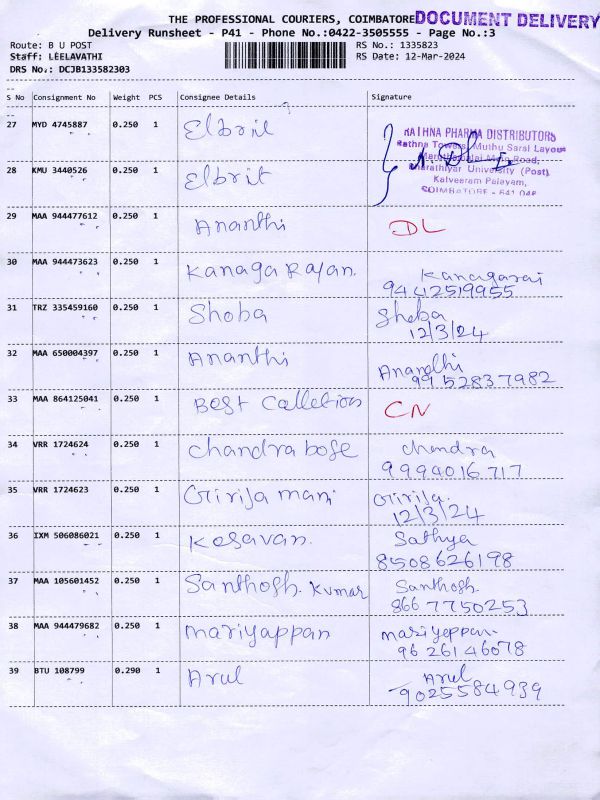 THE PROFESSIONAL COURIERS, COIMBATORE DOCUMENT DELIVERY
Delivery Runsheet - P41 - Phone No.:0422-3505555 - Page No.:3
Route: B U POST
Staff: LEELAVATHI
DRS No.: DCJB133582303
RS No.: 1335823
RS Date: 12-Mar-2024
S No Consignment No Weight PCS Consignee Details Signature
27 MYD 4745887 0.250 1 Elbril
RATHNA PHARMA DISTRIBUTORS
Rathna Towers, Muthu Sarai Layout
Maruthamalai Main Road,
Bharathiyar University (Post),
Kalveeram Palayam,
COIMBATORE - 641 046
28 KMU 3440526 0.250 1 Elbrit
29 MAA 944477612 0.250 1 Ananthi DL
30 MAA 944473623 0.250 1 Kanaga Rajan. Kanagaraj
9442519955
31 TRZ 335459160 0.250 1 Shoba Shoba
12/3/24
32 MAA 650004397 0.250 1 Ananthi Anandhi
9952837982
33 MAA 864125041 0.250 1 Best Calletions CN
34 VRR 1724624 0.250 1 Chandra bose Chandra
9994016717
35 VRR 1724623 0.250 1 Girija mani Girija.
12/3/24
36 IXM 506086021 0.250 1 Kesavan. Sathya
8508626198
37 MAA 105601452 0.250 1 Santhosh. Kumar Santhosh.
8667750253
38 MAA 944479682 0.250 1 Mariyappan Mariyappan.
9626146078
39 BTU 108799 0.290 1 Arul Arul
9025584939